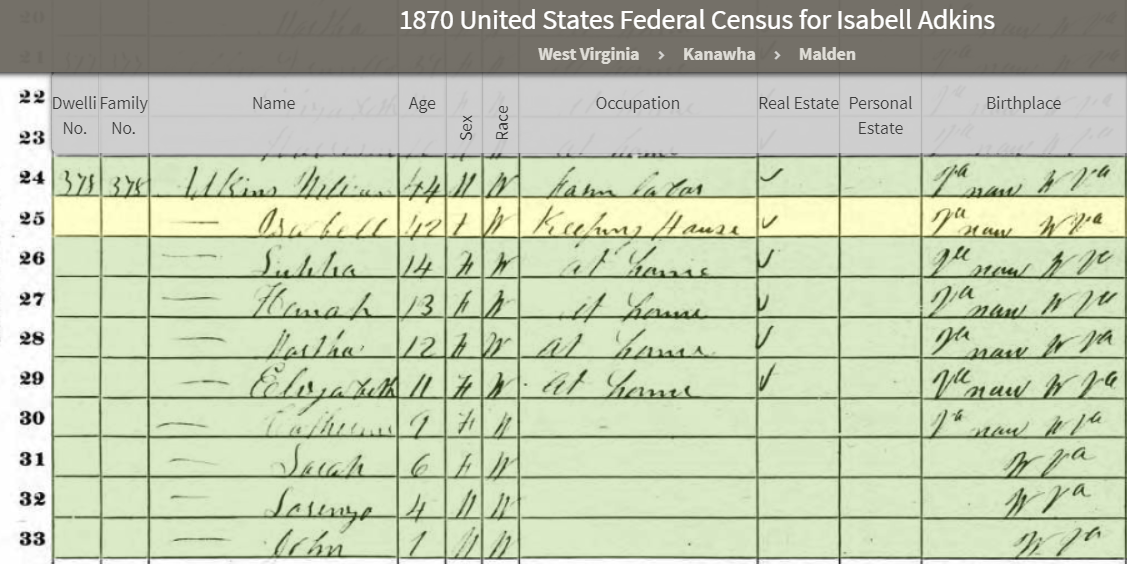 1870 United States Federal Census for Isabell Adkins
West Virginia > Kanawha > Malden
Dwelli No. Family No. Name Age Sex Race Occupation Real Estate Personal Estate Birthplace
22
23 at home
24 378 378 Adkins William 44 M W Farm Labor Va now W Va
25 — Isabell 42 F W Keeping House Va now W Va
26 — 14 F W at home Va now W Va
27 — Hanah 13 F W at home Va now W Va
28 — Martha 12 F W at home Va now W Va
29 — Elizabeth 11 F W at home Va now W Va
30 — Catherine 9 F W Va now W Va
31 — Sarah 6 F W W Va
32 — Lorenzo 4 M W W Va
33 — John 1 M W W Va